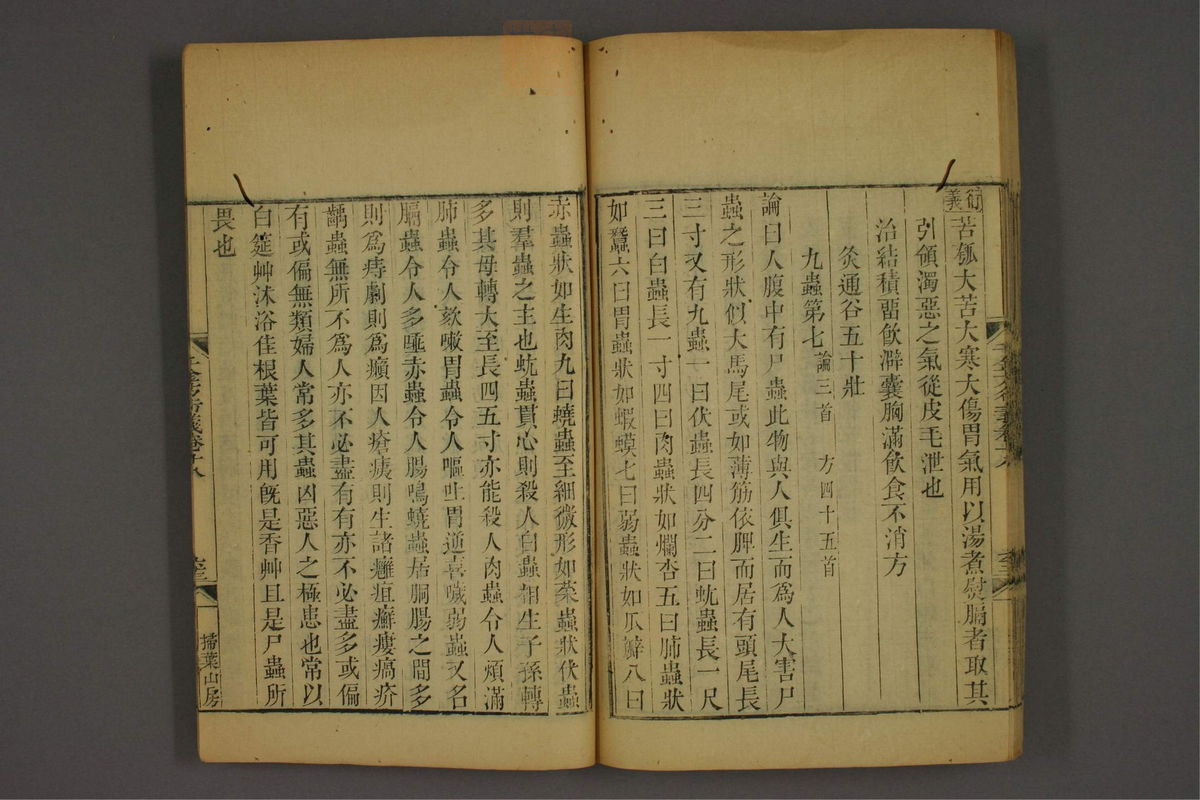 衍義
苦瓠大苦大寒大傷胃氣用以湯煮熨膈者取其
引領濁惡之氣從皮毛泄也
治結積畱飲澼囊胸滿飲食不消方
灸通谷五十壯
九蟲第七 論三首 方四十五首
論曰人腹中有尸蟲此物與人俱生而爲人大害尸
蟲之形狀似大馬尾或如薄筋依脾而居有頭尾長
三寸又有九蟲一曰伏蟲長四分二曰蚘蟲長一尺
三曰白蟲長一寸四曰肉蟲狀如爛杏五曰肺蟲狀
如蠶六曰胃蟲狀如蝦蟆七曰弱蟲狀如瓜瓣八曰
赤蟲狀如生肉九曰蟯蟲至細微形如菜蟲狀伏蟲
則羣蟲之主也蚘蟲貫心則殺人白蟲相生子孫轉
多其母轉大至長四五寸亦能殺人肉蟲令人煩滿
肺蟲令人欬嗽胃蟲令人嘔吐胃逆喜噦弱蟲又名
膈蟲令人多唾赤蟲令人腸鳴蟯蟲居胴腸之間多
則爲痔劇則爲癩因人瘡痍則生諸癰疽癬瘻瘑疥
齲蟲無所不爲人亦不必盡有有亦不必盡多或偏
有或偏無類婦人常多其蟲凶惡人之極患也常以
白筵艸沐浴佳根葉皆可用旣是香艸且是尸蟲所
畏也
掃葉山房